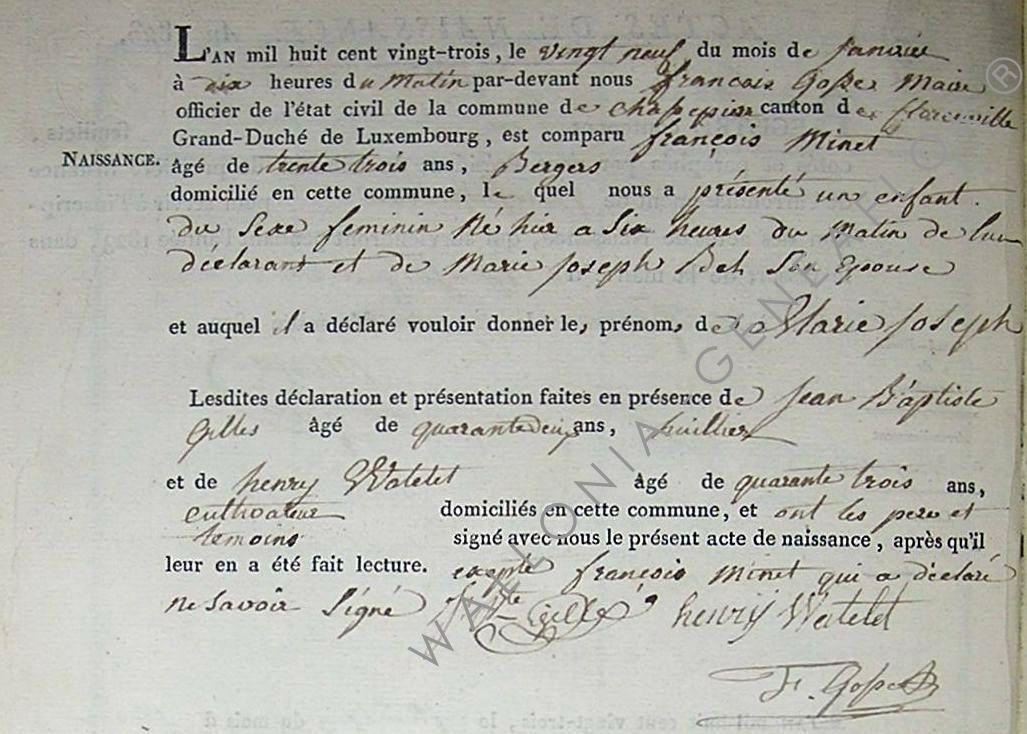 L'AN mil huit cent vingt-trois, le vingt neuf du mois de Janvier
à dix heures du Matin par-devant nous françois Gosse Maire
officier de l'état civil de la commune de chassepierre canton de florenville
Grand-Duché de Luxembourg, est comparu françois Minet
NAISSANCE. âgé de trente trois ans, Bergers
domicilié en cette commune, le quel nous a présenté un enfant.
du sexe feminin Né hier a Six heures du Matin de lui
déclarant et de Marie Joseph Son Epouse
et auquel il a déclaré vouloir donner le, prénom, de Marie Joseph
Lesdites déclaration et présentation faites en présence de Jean Baptiste
Gilles âgé de quarante deux ans, huillier
et de henry Watelet âgé de quarante trois ans,
cultivateur domiciliés en cette commune, et ont les pere et
temoins signé avec nous le présent acte de naissance, après qu'il
leur en a été fait lecture. excepte françois Minet qui a déclaré
ne savoir Signé J Bte Gille henry Watelet
F. Gosse
WALLONIA GENEALO ®